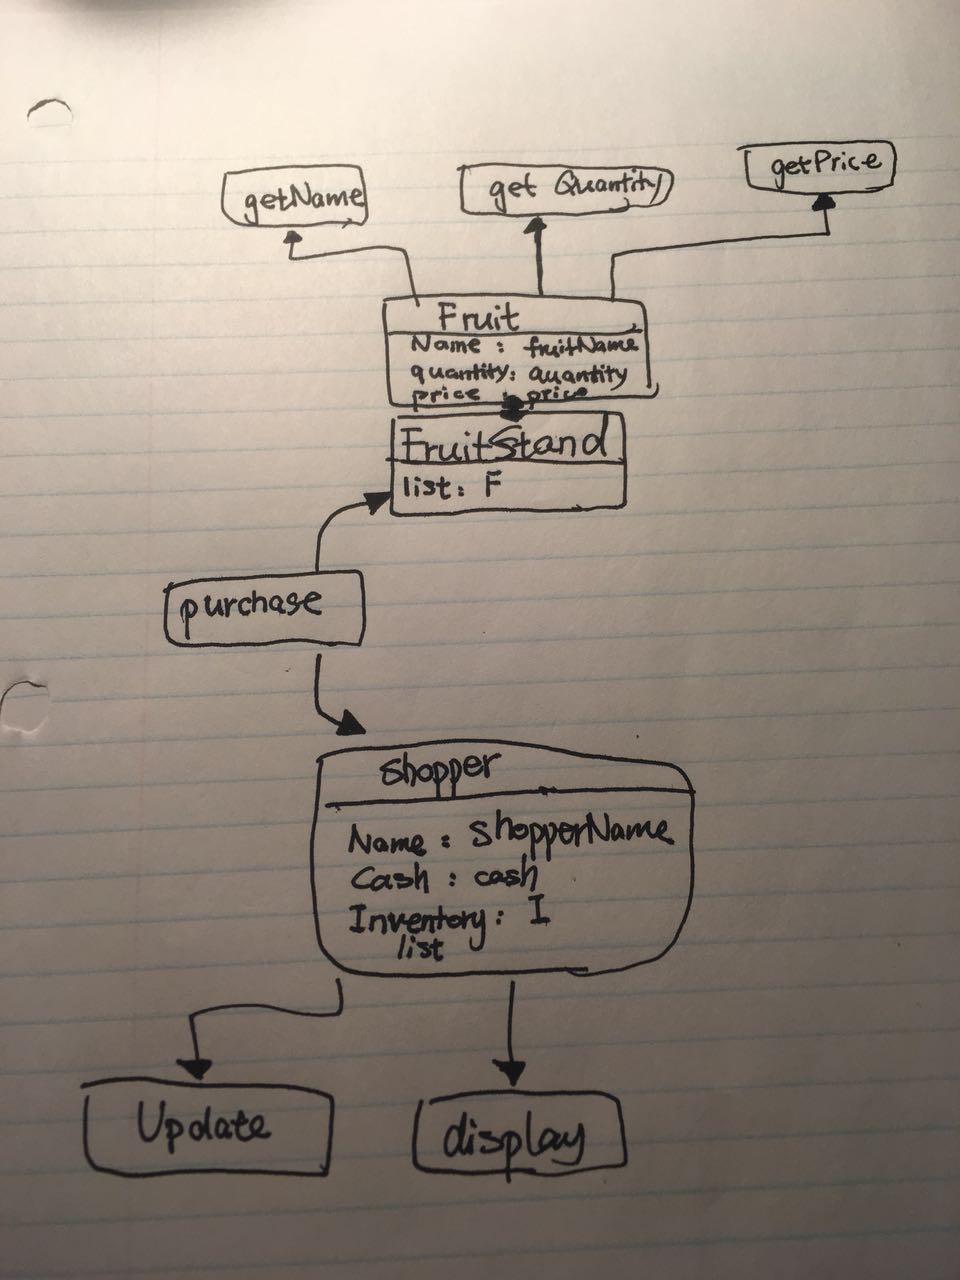 getName
get Quantity
getPrice
Fruit
Name : fruitName
quantity: quantity
price : price
FruitStand
list: F
purchase
Shopper
Name : ShopperName
Cash : cash
Inventory: I
list
Update
display